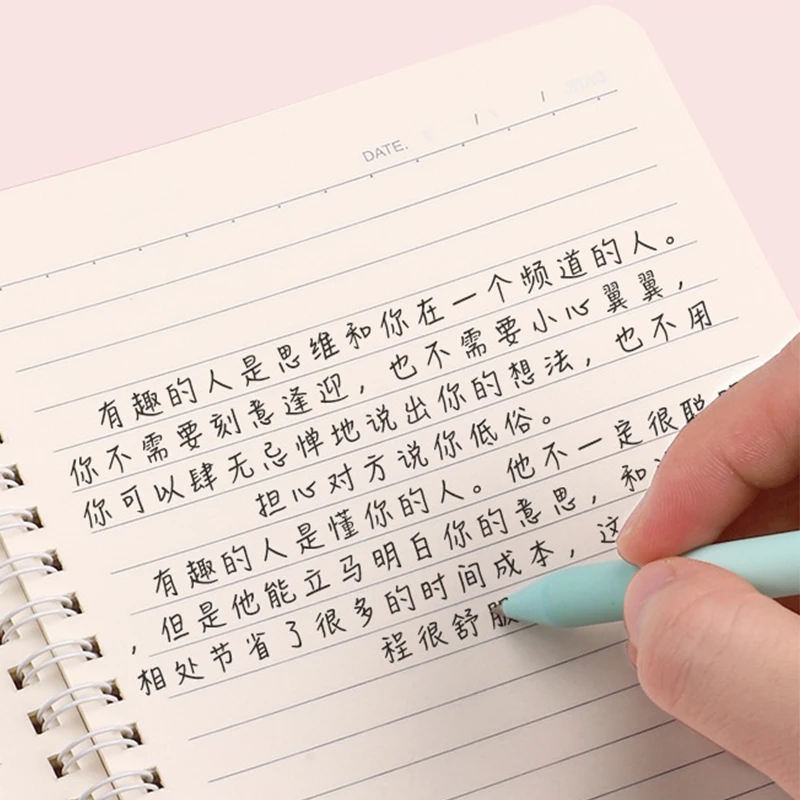 DATE. / /
有趣的人是思维和你在一个频道的人。
你不需要刻意逢迎，也不需要小心翼翼，
你可以肆无忌惮地说出你的想法，也不用
担心对方说你低俗。
有趣的人是懂你的人。他不一定很聪
，但是他能立马明白你的意思，和
相处节省了很多的时间成本，这
程很舒服